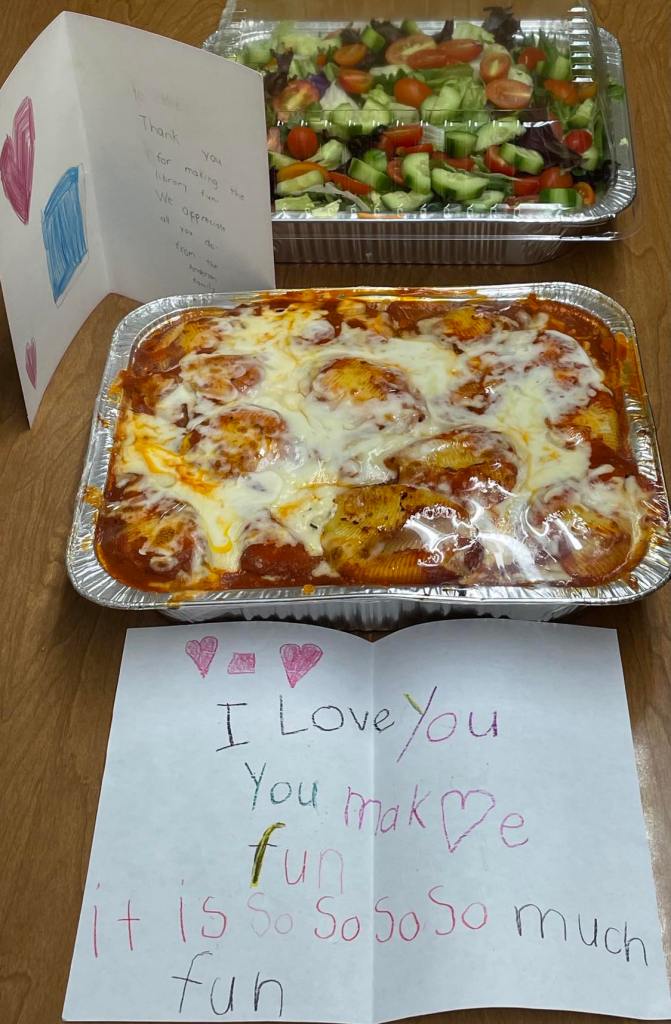 Thank you
for making the
library fun.
We appreciate
all you do.
from the
Anderson
family
I Love You
You mak e
fun
it is so so so so much
fun